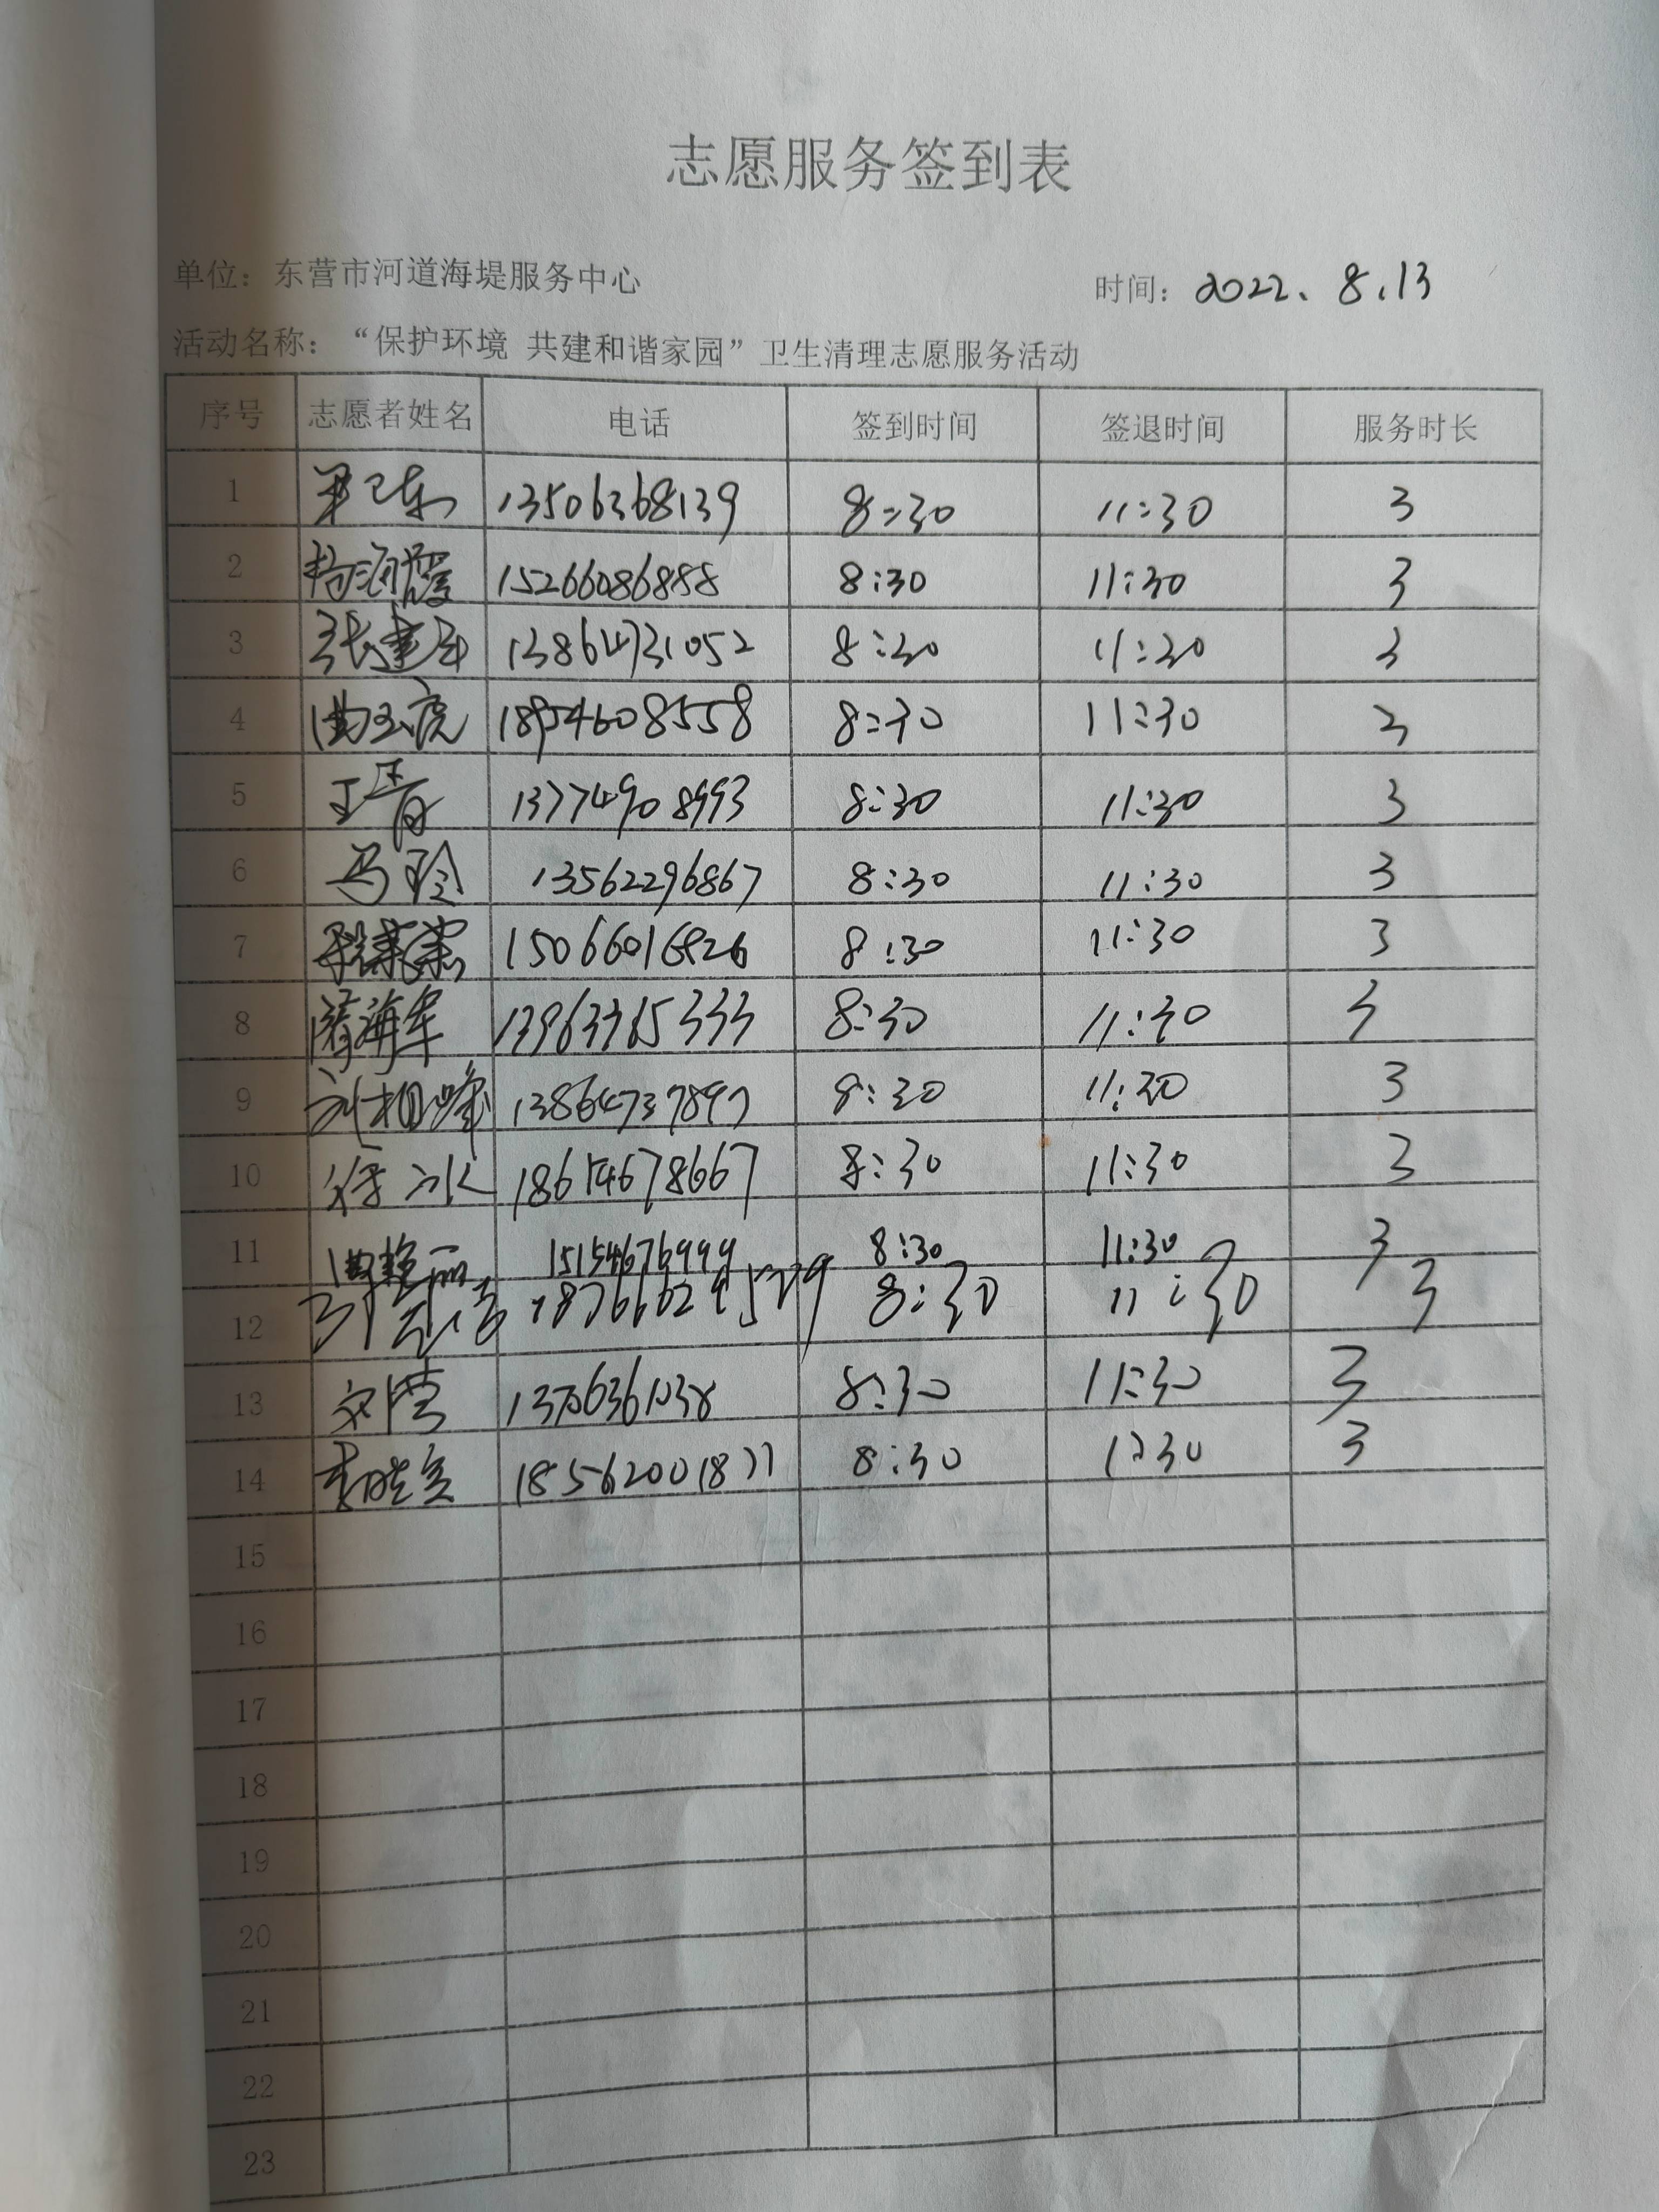 志愿服务签到表
单位：东营市河道海堤服务中心 时间：2022.8.13
活动名称：“保护环境 共建和谐家园”卫生清理志愿服务活动
序号 志愿者姓名 电话 签到时间 签退时间 服务时长
1 13506368139 8:30 11:30 3
2 杨海霞 15266086888 8:30 11:30 3
3 张建军 13864731052 8:30 11:30 3
4 曲玉虎 18954608558 8:30 11:30 3
5 王青 13774908993 8:30 11:30 3
6 冯玲 13562296867 8:30 11:30 3
7 15066016826 8:30 11:30 3
8 隋海军 13963365333 8:30 11:30 3
9 刘相峰 13864737897 8:30 11:30 3
10 徐冰 186154678667 8:30 11:30 3
11 曲艳丽 15154676999 8:30 11:30 3
12 8:30 11:30 3
13 8:30 11:30 3
14 李晓 18562001877 8:30 11:30 3
15
16
17
18
19
20
21
22
23